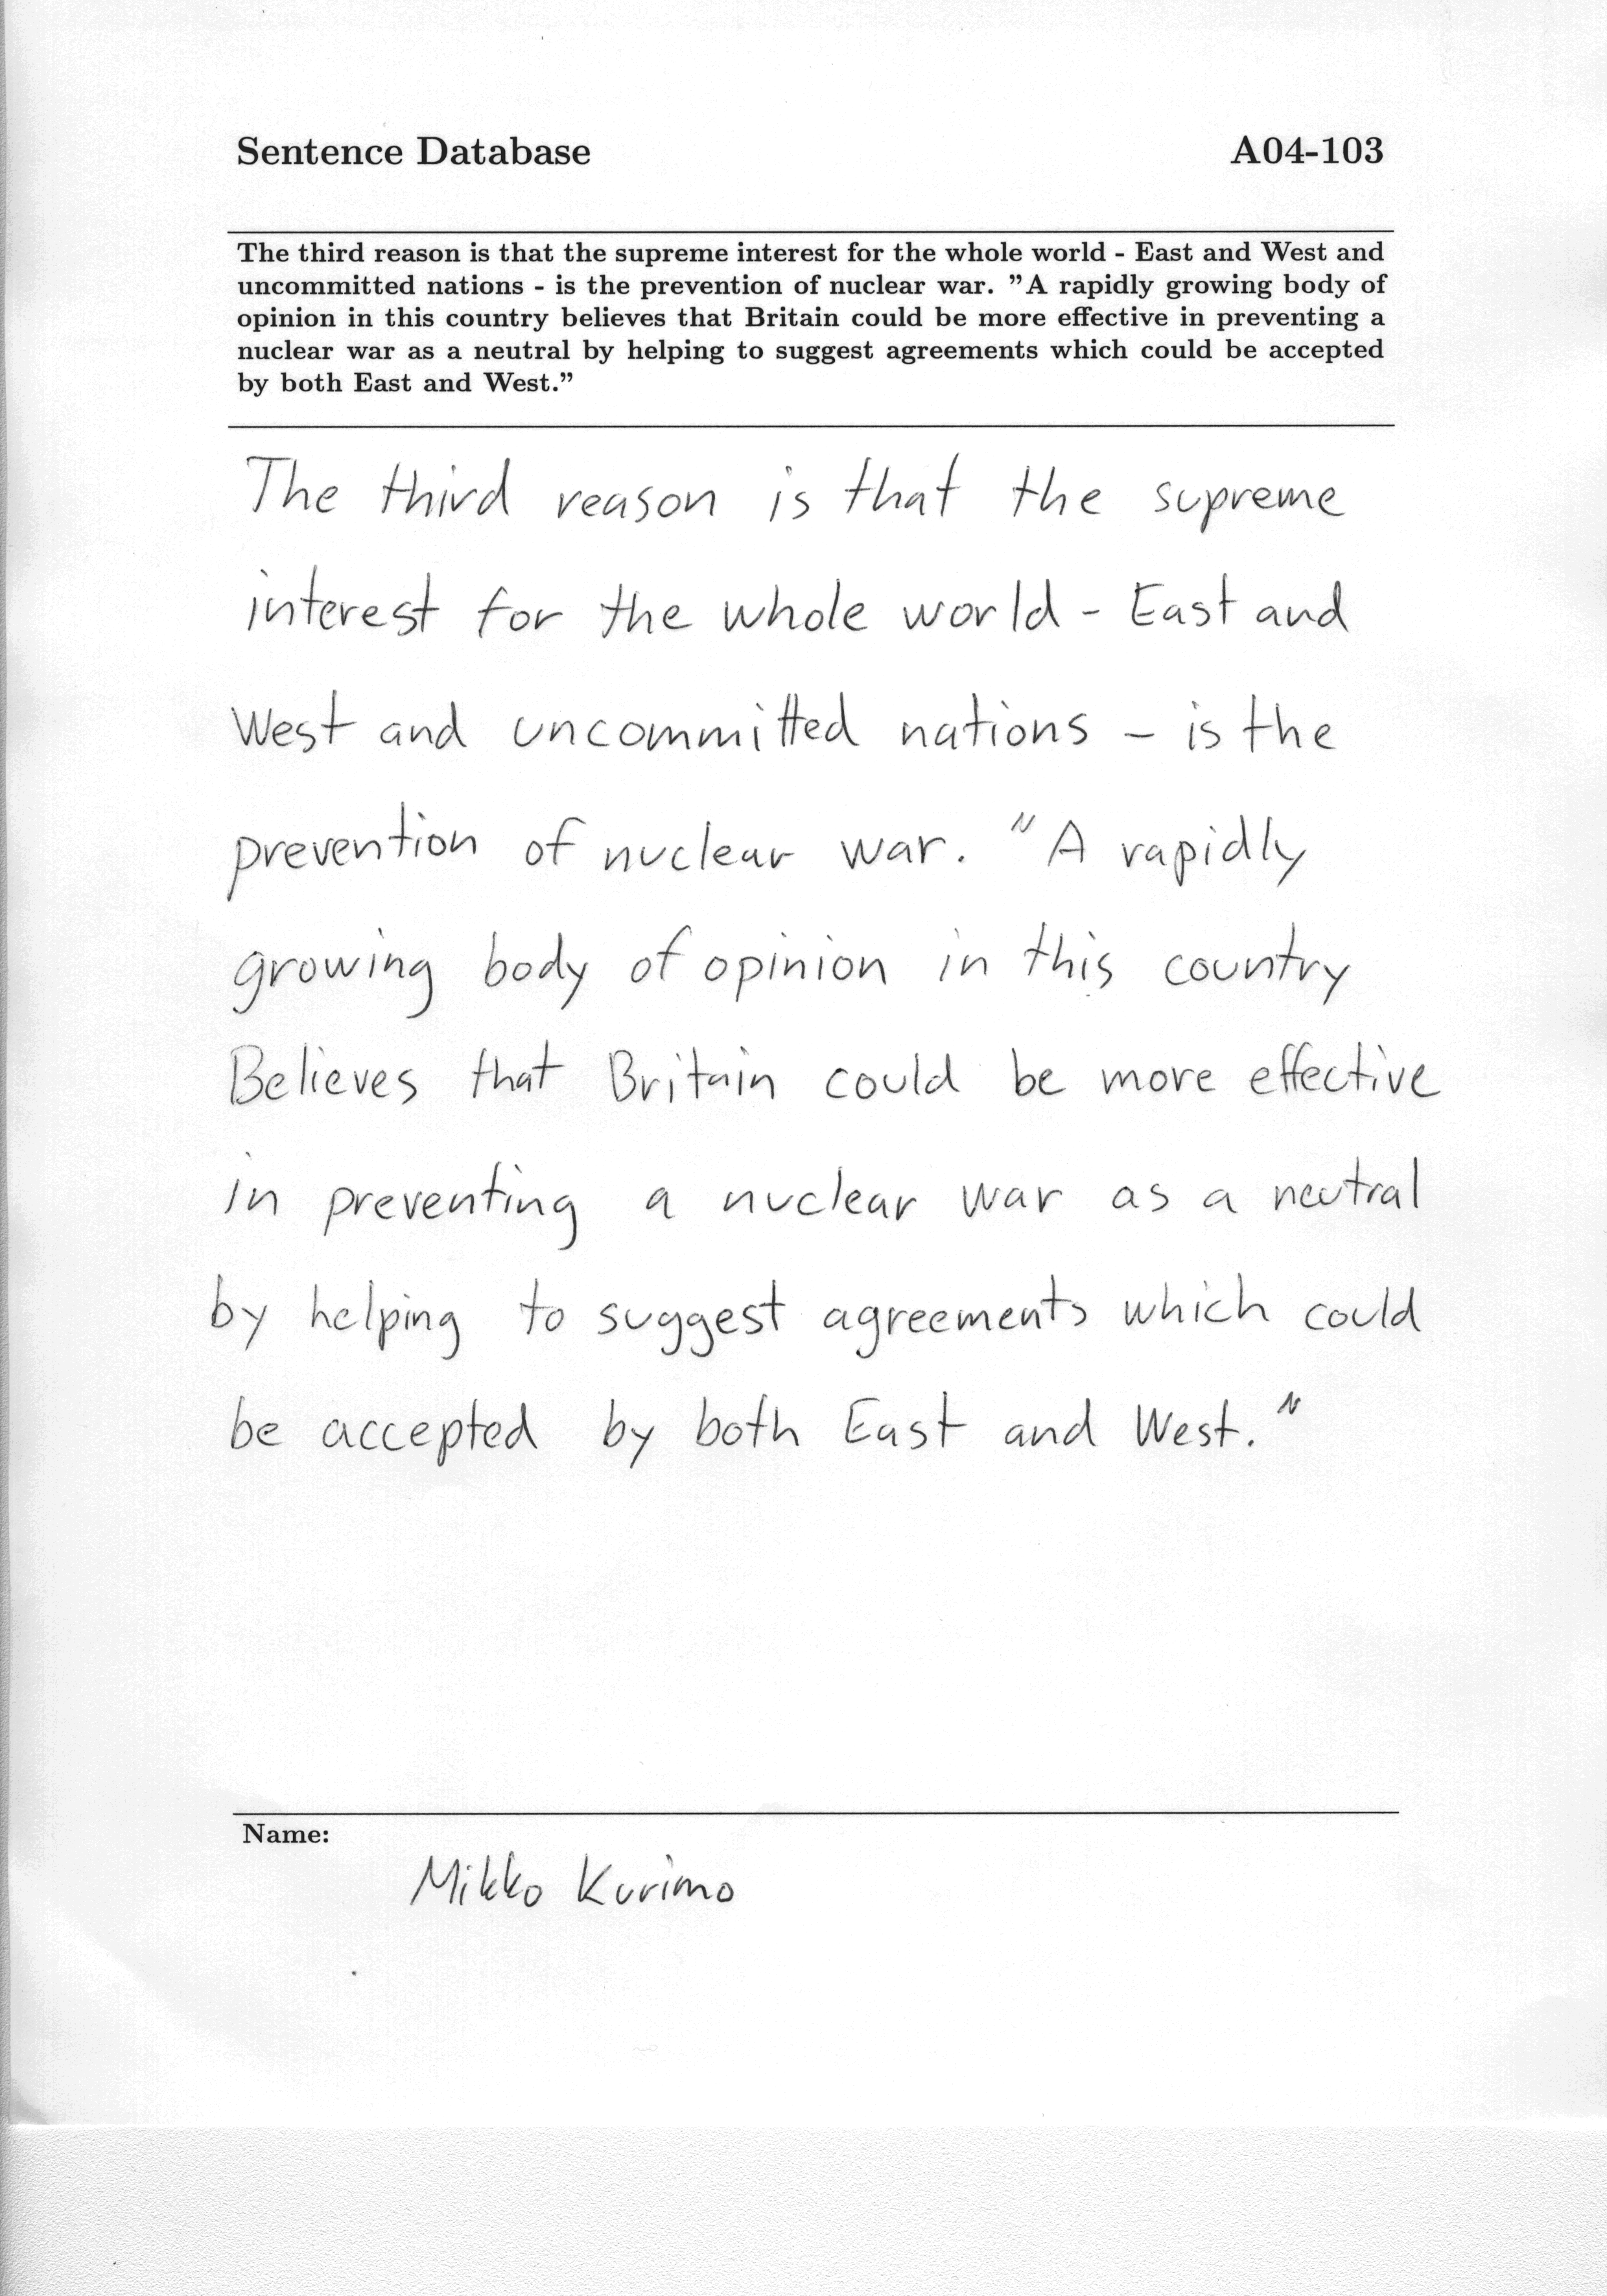 Sentence Database A04-103
The third reason is that the supreme interest for the whole world - East and West and
uncommitted nations - is the prevention of nuclear war. ”A rapidly growing body of
opinion in this country believes that Britain could be more effective in preventing a
nuclear war as a neutral by helping to suggest agreements which could be accepted
by both East and West.”
The third reason is that the supreme
interest for the whole world - East and
West and uncommitted nations - is the
prevention of nuclear war. "A rapidly
growing body of opinion in this country
Believes that Britain could be more effective
in preventing a nuclear war as a neutral
by helping to suggest agreements which could
be accepted by both East and West."
Name:
Mikko Kurimo